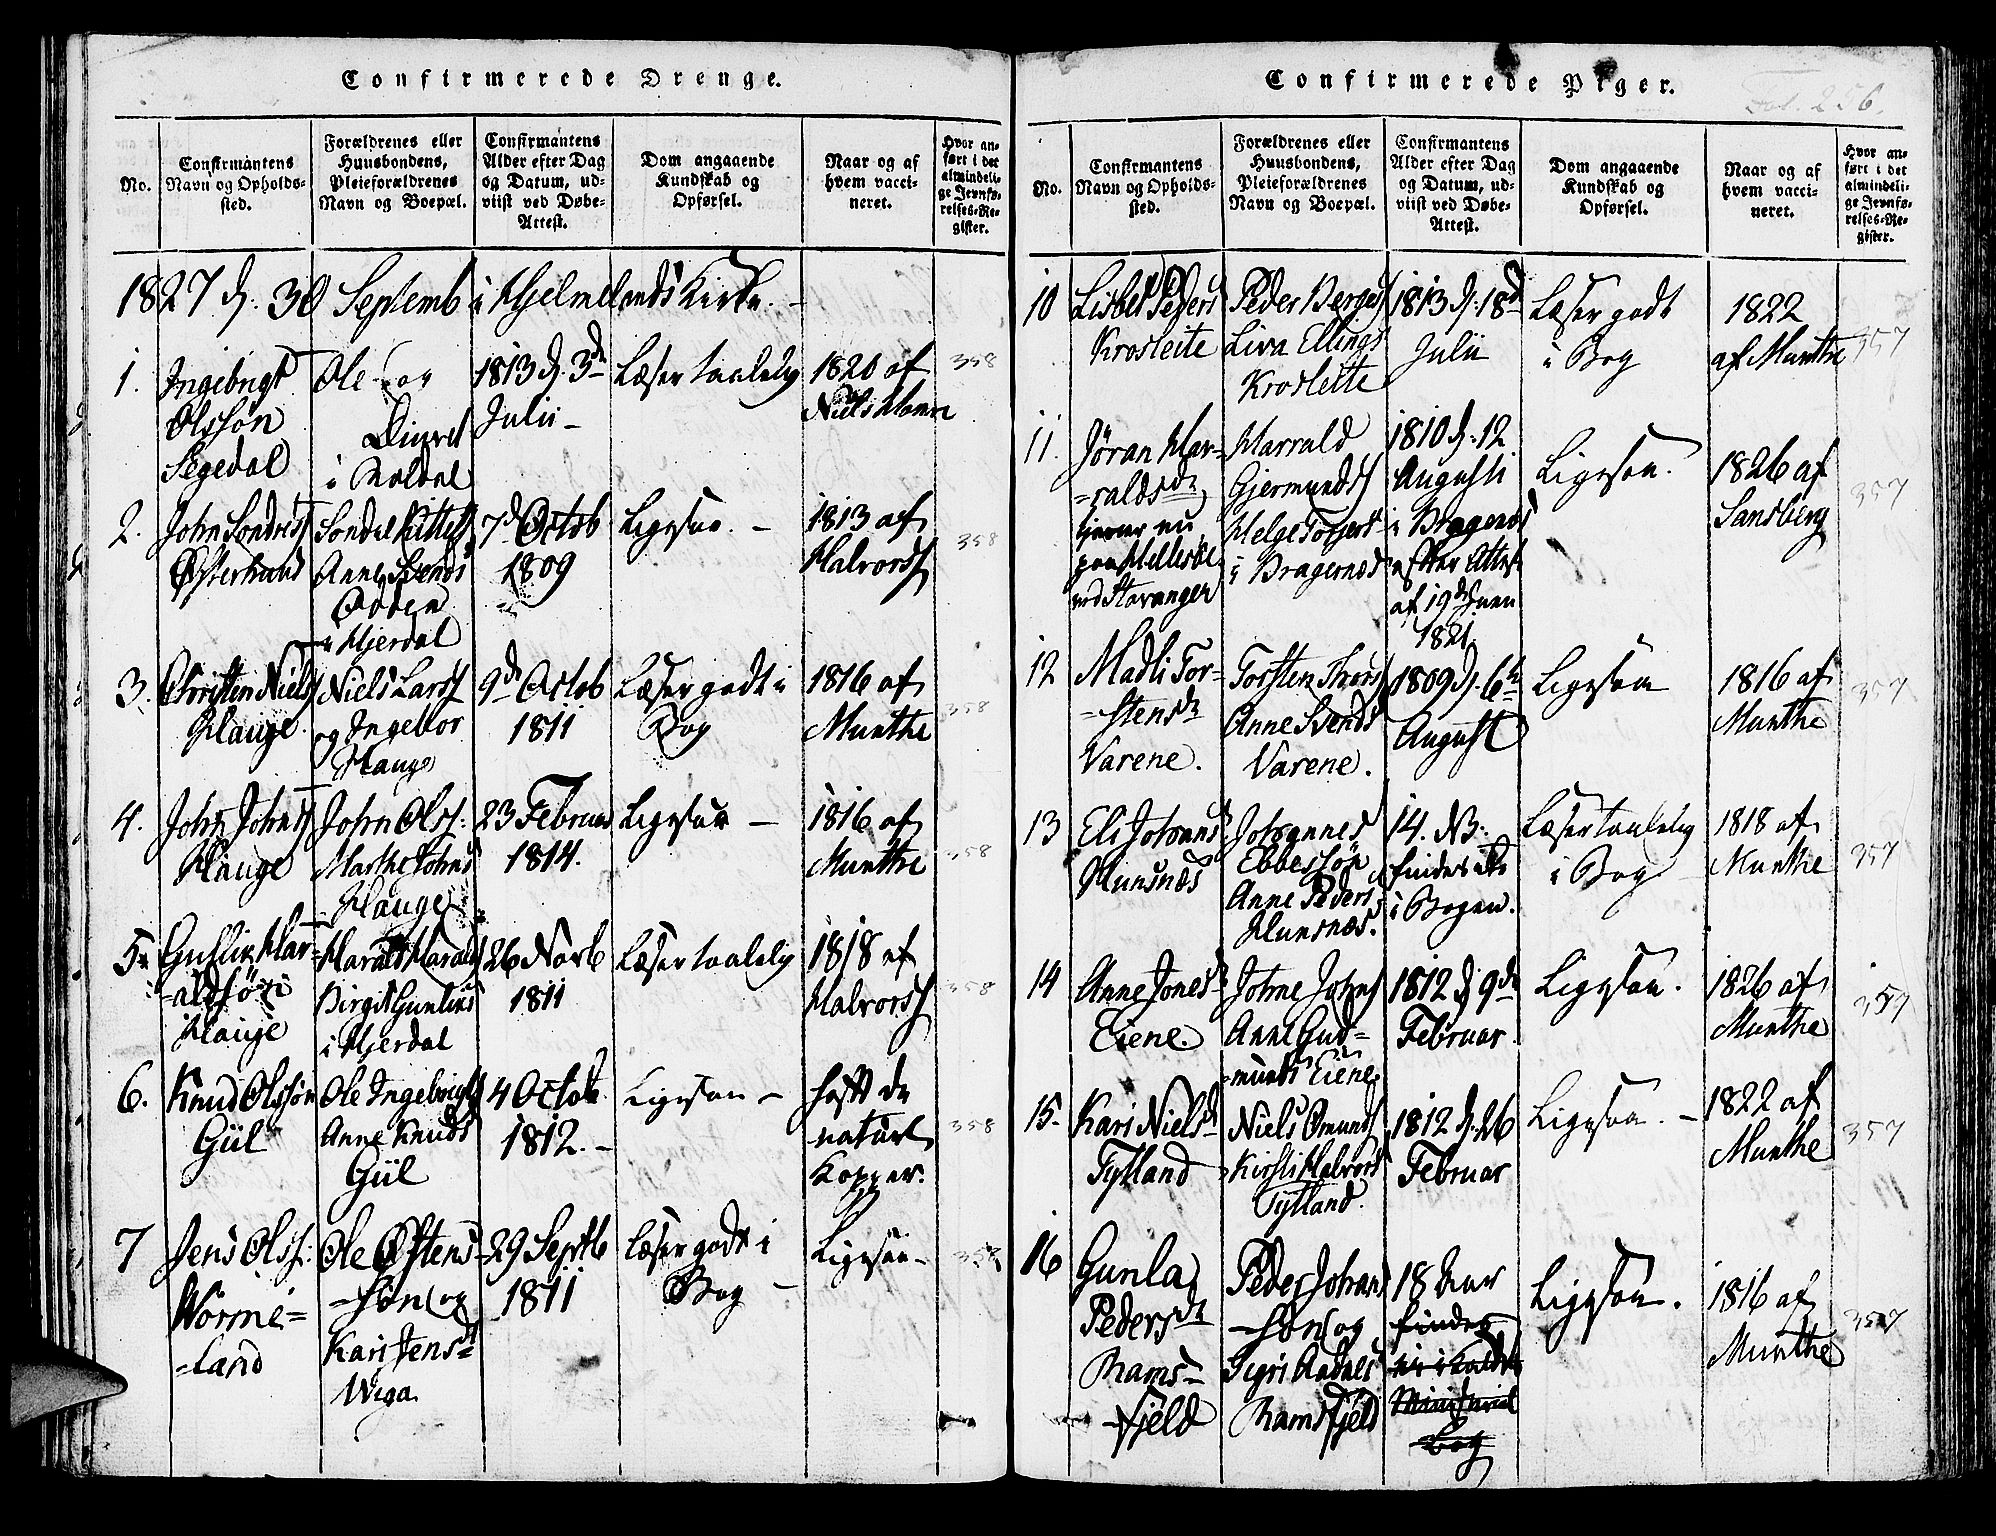 Confirmerede Drenge.
No.
Confirmantens
Navn og Opholds-
sted.
Forældrenes eller
Huusbondens,
Pleieforældrenes
Navn og Boepæl.
Confirmantens
Alder efter Dag
og Datum, ud-
viist ved Døbe-
Attest.
Dom angaaende
Kundskab og
Opførsel.
Naar og af
hvem vacci-
neret.
Hvor an-
ført i det
almindeli-
ge Jevnfø-
relses-Re-
gister.
1827 d. 30 Septemb i Hjelmelands Kirke. -
1.
Ingebrigt
Olssøn
Segedal
Ole og
i
1813 d. 3de
Julii -
Læser taalelig
1820 af
Niels
358
2.
John Sondress
Østerhuus
Kittels
Anne Svends
i Hjerdal
7de Octob
1809
Ligesaa. -
1813 af
Halvorss
358
3.
Christen Nielss
Hauge
Niels Larss
og Ingebor
Hauge
9de Octob
1811
Læser godt i
Bog
1816 af
Munthe
358
4.
John Johns
Hauge
John Olss.
Marthe Johns
Hauge
23 Februar
1814.
Ligesaa -
1816 af
Munthe
358
5.
Gunlix Har-
-aldssøn i
Hauge
Harald Haralds
Birgit Gunlixs
i Hjerdal
26 Novb
1811
Læser taalelig
1818 af
Halvorss
358
6.
Knud Olssøn
Giil
Ole Ingebrigts
Anne Knuds
Giil
4 Octob.
1812. -
Ligesaa -
haft de
naturl.
Kopper.
358
7
Jens Olss:
Worme=
=land
Ole Østens-
-søn og
Kari Jensdt
Wiga
29 Septb
1811
læser godt i
Bog -
Ligesaa -
358
Confirmerede Piger.
Fol. 256.
No.
Confirmantens
Navn og Opholds-
sted.
Forældrenes eller
Huusbondens,
Pleieforældrenes
Navn og Boepæl.
Confirmantens
Alder efter Dag
og Datum, ud-
viist ved Døbe-
Attest.
Dom angaaende
Kundskab og
Opførsel.
Naar og af
hvem vacci-
neret.
Hvor an-
ført i det
almindeli-
ge Jevnfø-
relses-Re-
gister.
10
Lisbet Peders
Krosleite
Peder Bergess
Liva Ellings
Krosleite
1813 d. 18de
Julii
Læser godt
i Bog
1822
af Munthe
357
11.
Jøran Har-
=raldsdt
tjener nu
paa Hellesøe
ved Stavanger
Harrald
Gjermunds
Helge Torgers
i Bragernæs
1810 d. 12
Augusti
i Bragernæs
efter Attest
af 19de Juni
1821
Ligesaa.
1826 af
Sansberg
357
12
Madli Tor-
-stensdt
Varene.
Torsten Thors
Anne Svends
Varene.
1809 d. 6te
August
Ligesaa
1816 af
Munthe
357
13
Eli Johans
Hunsnæs
Johannes
Ebbessøn
Anne Peders
Hunsnæs.
14. NB.
findes ikke
i Bogen.
Læser taalelig
i Bog
1818 af
Munthe
357
14
Anne Jonesdt
Eiene.
Johne Johns
Anne Gud=
=munds Eiene
1812 d 9de
Februar
Ligesaa.
1826 af
Munthe
357
15.
Kari Nielsdt
Tytland
Niels Omunds
Kirsti Halvors
Tytland.
1812 d. 26
Februar
Ligesaa. -
1822 af
Munthe
357
16
Gunla
Pedersdt
Rams-
-fjeld
Peder Johans
-søn og
Sigri
Ramsfjeld
18 Aar
findes
Ministerial
Bog
Ligesaa.
1816 af
Munthe
357